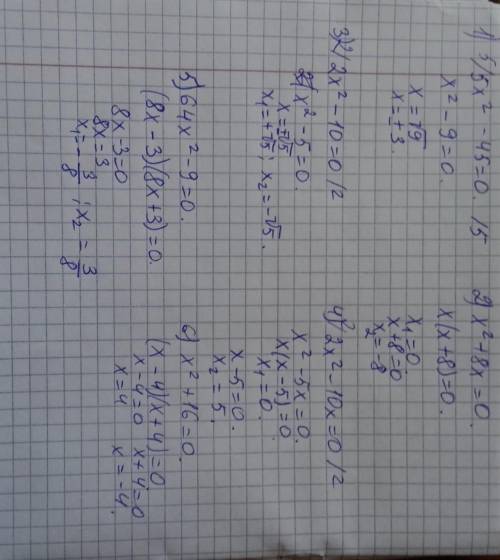 1) 5x² - 45 = 0. |5
x² - 9 = 0.
x = √9
x = ±3.
2) x² + 8x = 0.
x(x+8) = 0.
x₁ = 0.
x + 8 = 0.
x₂ = -8
3) 2x² - 10 = 0 |2
x² - 5 = 0.
x = ±√5
x₁ = +√5; x₂ = -√5.
4) 2x² - 10x = 0 |2
x² - 5x = 0.
x(x - 5) = 0.
x₁ = 0.
x - 5 = 0.
x₂ = 5.
5) 64x² - 9 = 0.
(8x - 3)(8x + 3) = 0.
8x - 3 = 0
8x = 3
x₁ = -3/8; x₂ = 3/8
6) x² + 16 = 0.
(x - 4)(x + 4) = 0
x - 4 = 0 x + 4 = 0
x = 4 x = -4.